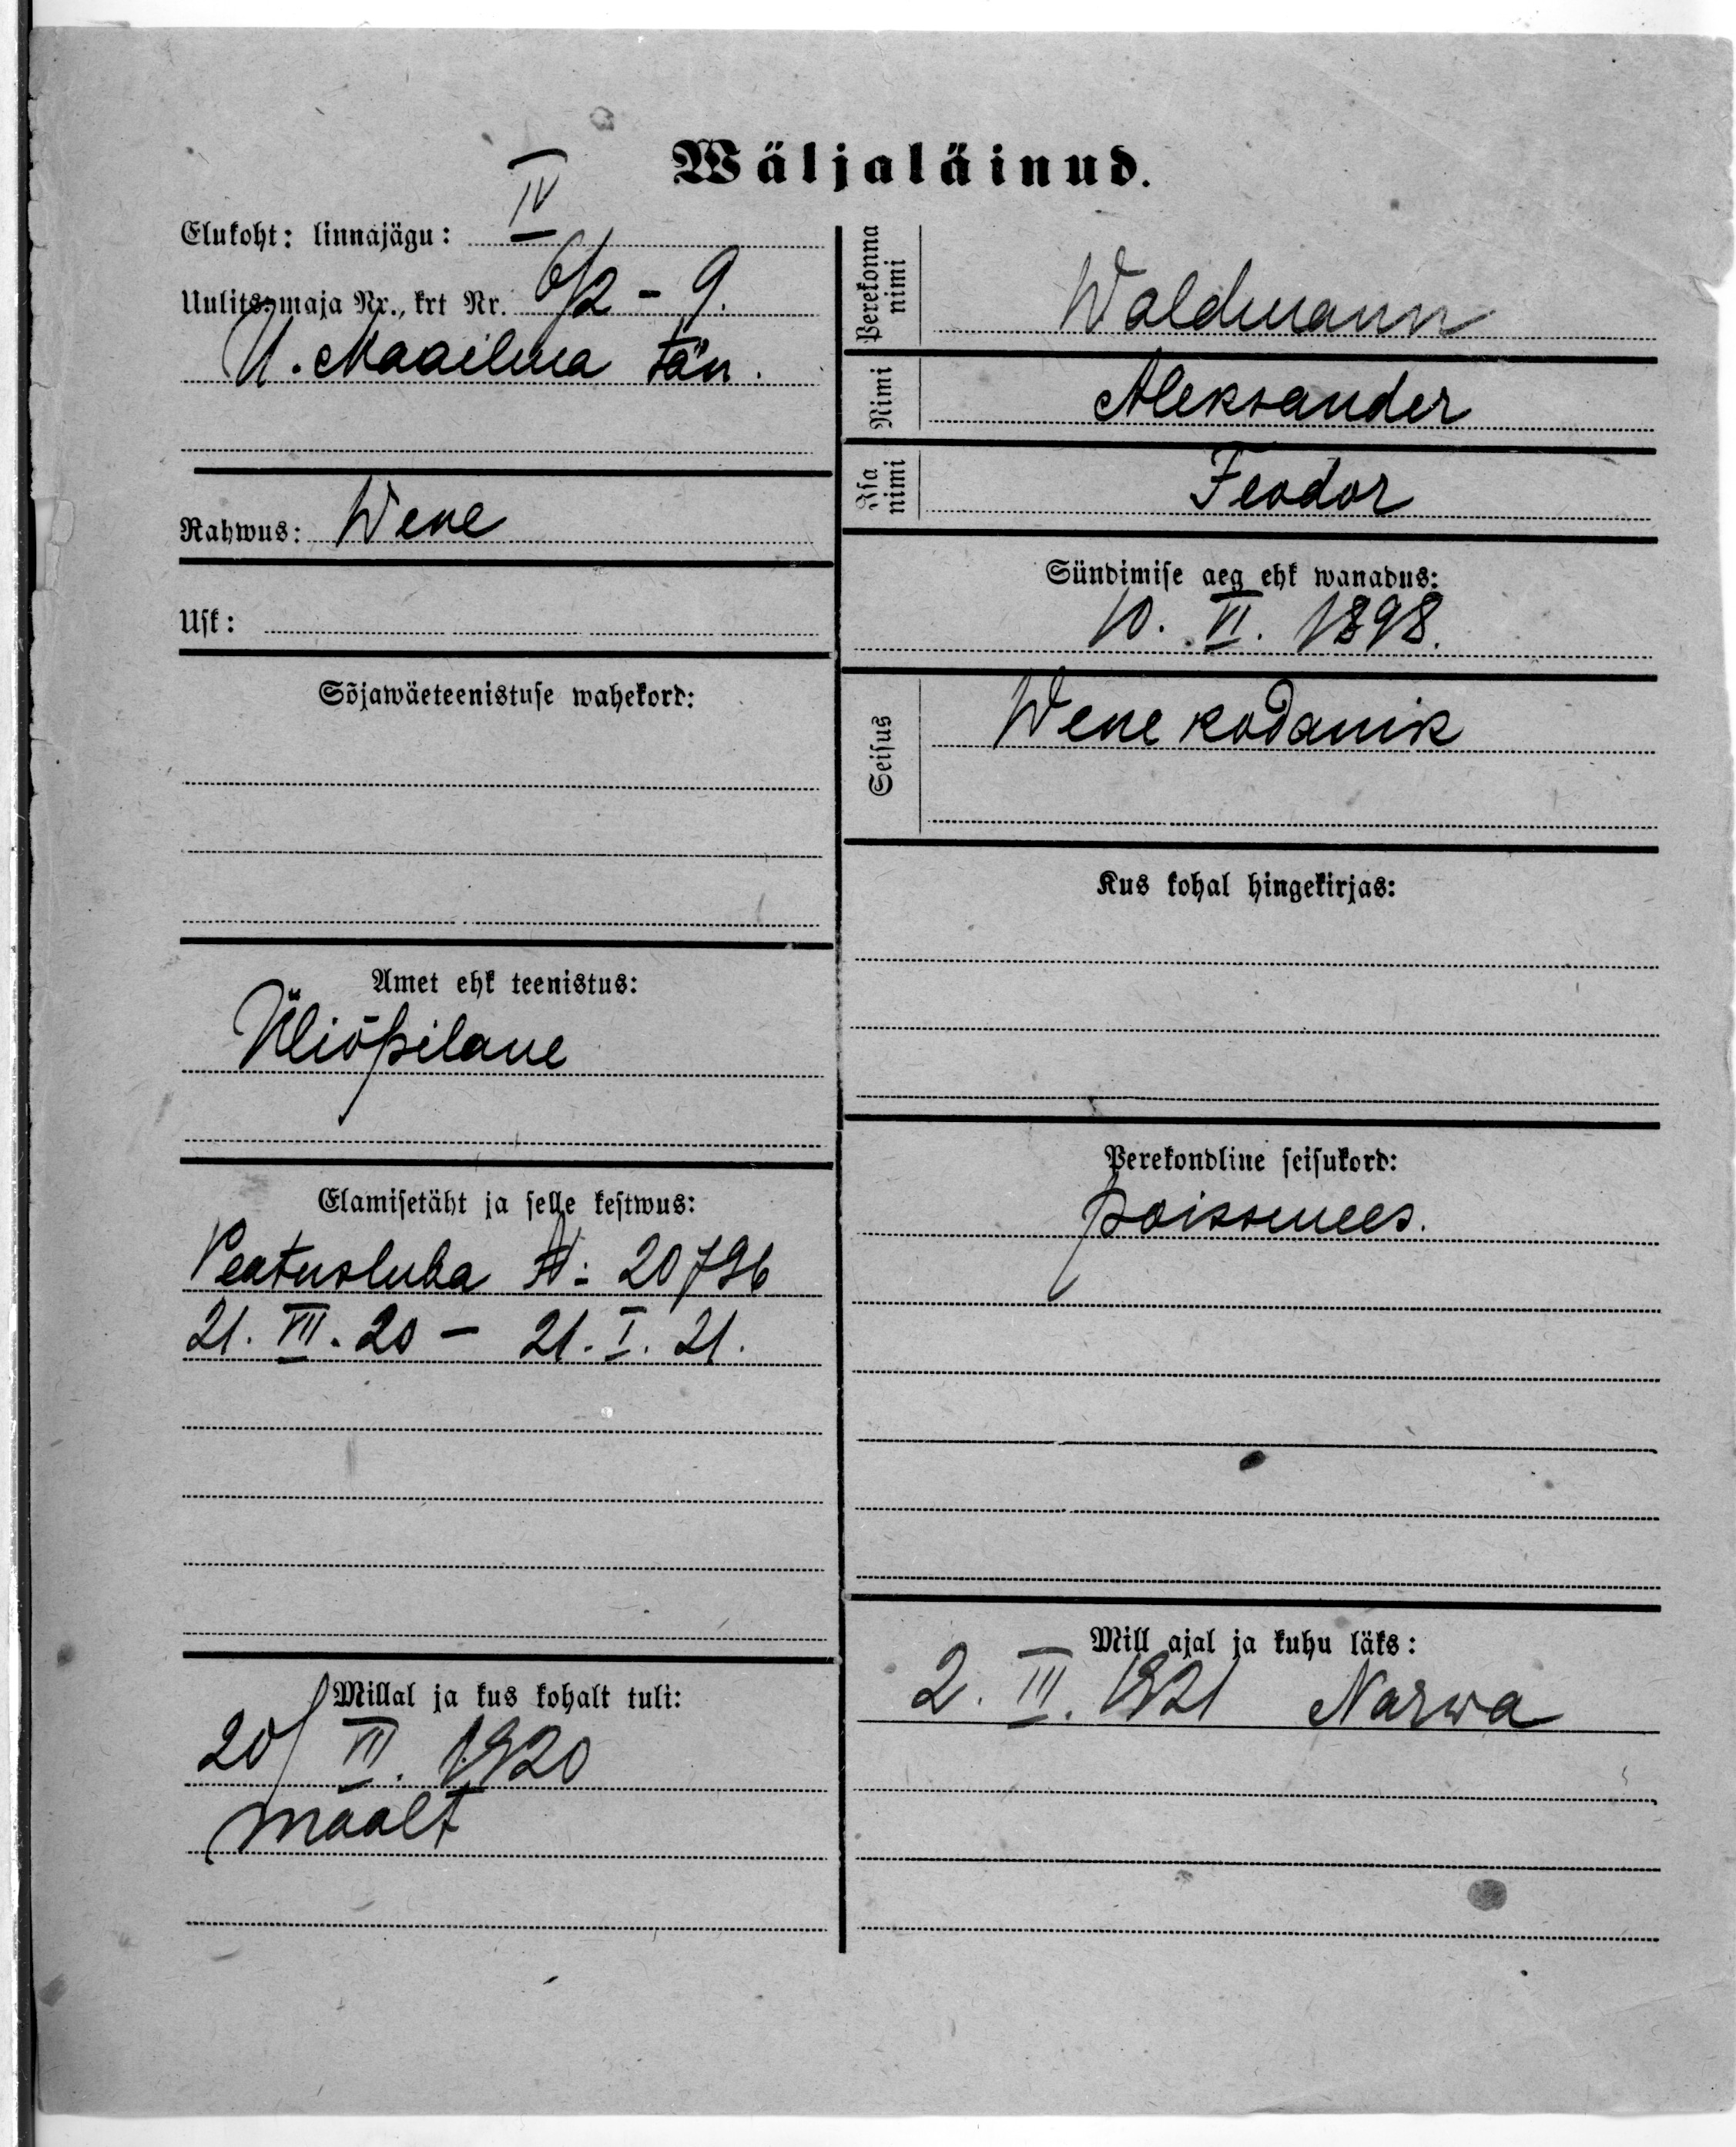 Wäljaläinud.
Elukoht: linnajägu: IV
Uulits, maja Nr., krt Nr. 6/2 - 9.
U. Maailma tän.
Rahwus: Wene
Usk:
Sõjawäeteenistuse wahekord:
Amet ehk teenistus:
Üliõpilane
Elamisetäht ja selle kestwus:
Peatusluba №: 20796
21. VII. 20 — 21. I. 21.
Millal ja kus kohalt tuli:
20/ VII. 1920
maalt
Perekonna nimi Waldmann
Nimi Aleksander
Isa nimi Feodor
Sündimise aeg ehk wanadus:
10. VI. 1898.
Seisus Wene kodanik
Kus kohal hingekirjas:
Perekondline seisukord:
poissmees.
Mill ajal ja kuhu läks:
2. III. 1921 Narwa